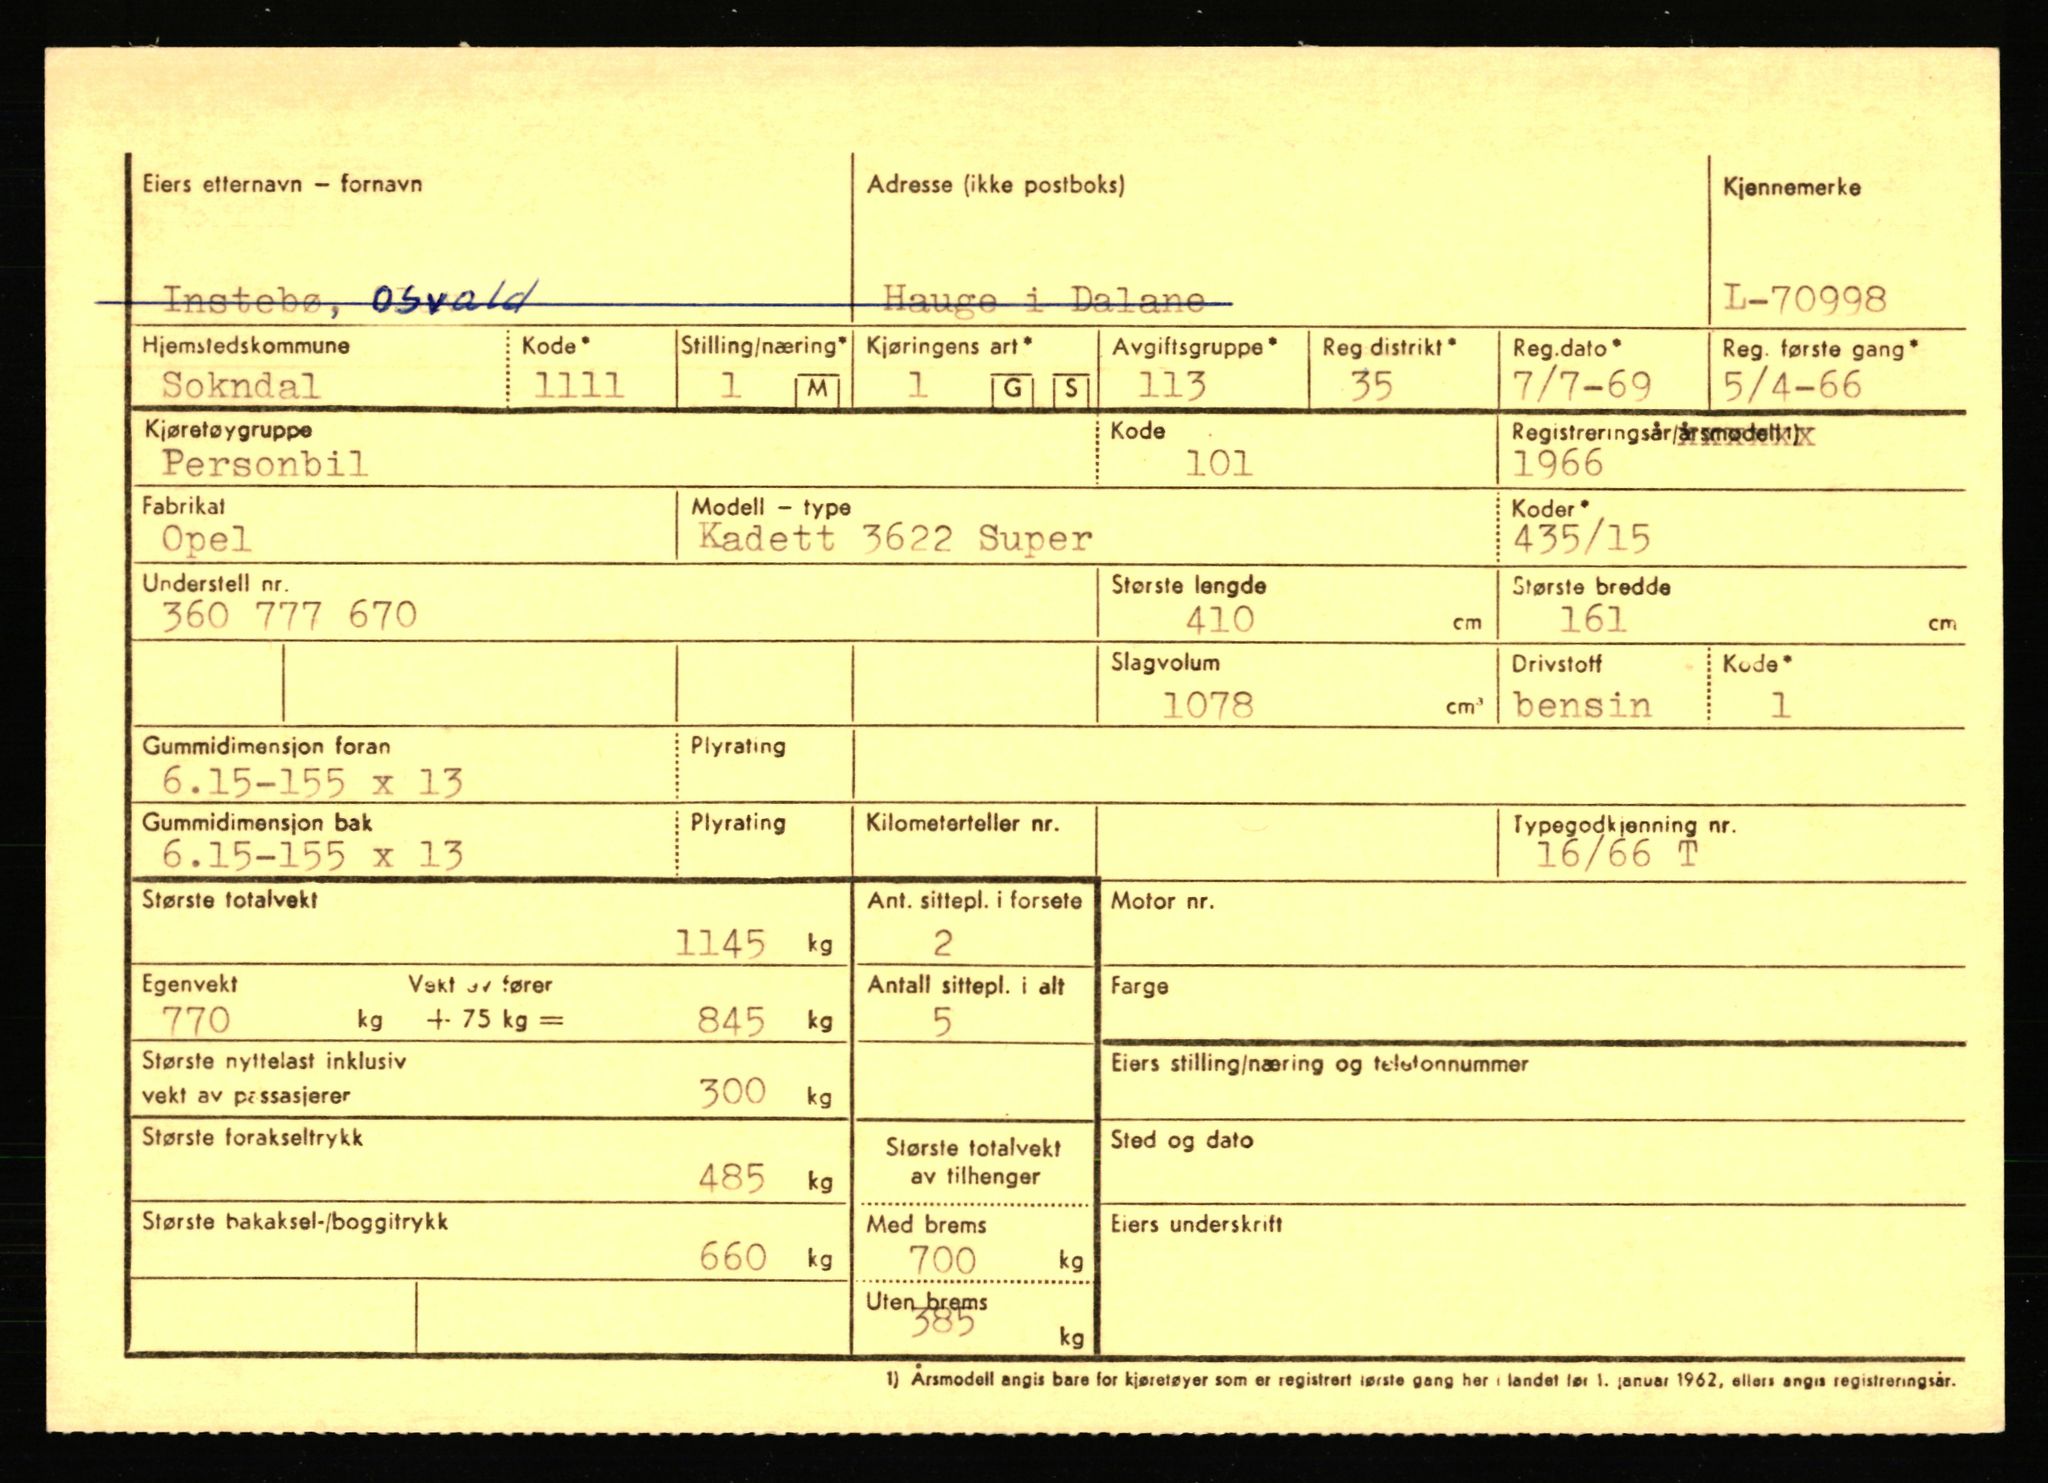 Eiers etternavn – fornavn Adresse (ikke postboks) Kjennemerke
Instebø, Osvald Hauge i Dalane L-70998
Hjemstedskommune Kode* Stilling/næring* Kjøringens art* Avgiftsgruppe* Reg distrikt* Reg.dato* Reg. første gang*
Sokndal 1111 1 M 1 G S 113 35 7/7-69 5/4-66
Kjøretøygruppe Kode Registreringsår/årsmodell 1)
Personbil 101 1966
Fabrikat Modell – type Koder*
Opel Kadett 3622 Super 435/15
Understell nr. Største lengde Største bredde
360 777 670 410 cm 161 cm
Slagvolum Drivstoff Kode*
1078 cm³ bensin 1
Gummidimensjon foran Plyrating
6.15-155 x 13
Gummidimensjon bak Plyrating Kilometerteller nr. Typegodkjenning nr.
6.15-155 x 13 16/66 T
Største totalvekt Ant. sittepl. i forsete Motor nr.
1145 kg 2
Egenvekt Vekt av fører Antall sittepl. i alt Farge
770 kg + 75 kg = 845 kg 5
Største nyttelast inklusiv Eiers stilling/næring og telefonnummer
vekt av passasjerer 300 kg
Største forakseltrykk Største totalvekt Sted og dato
485 kg av tilhenger
Største bakaksel-/boggitrykk Med brems Eiers underskrift
660 kg 700 kg
Uten brems
385 kg
1) Årsmodell angis bare for kjøretøyer som er registrert første gang her i landet før 1. januar 1962, ellers angis registreringsår.